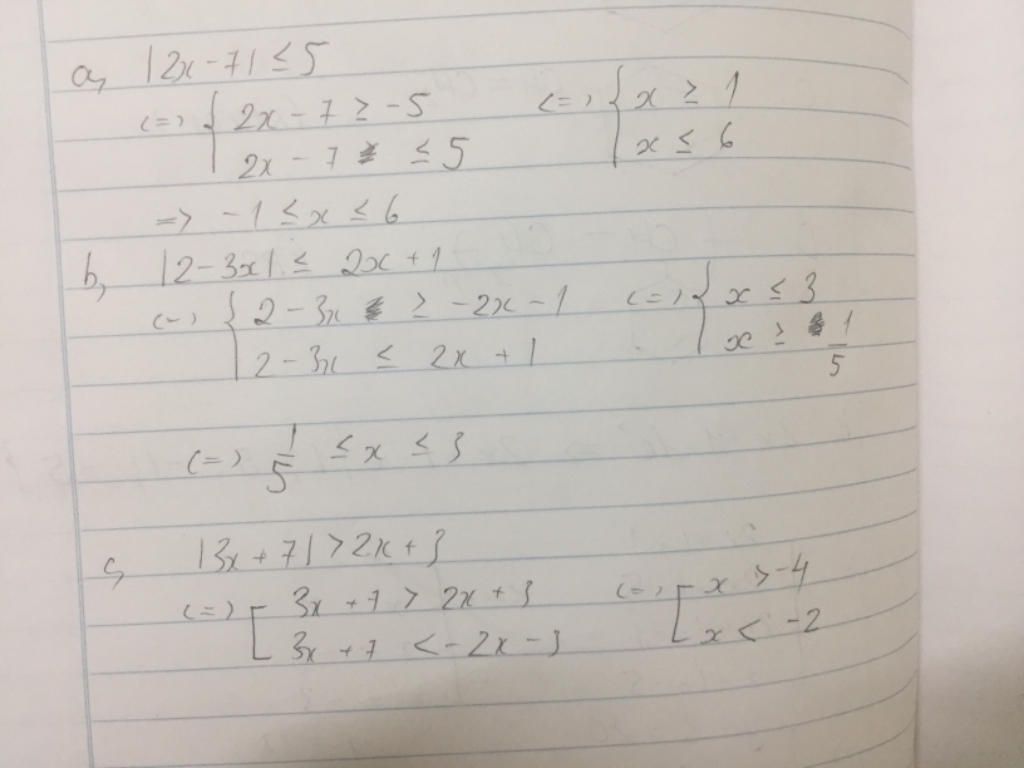 a, |2x-7| ≤ 5
(=) { 2x - 7 ≥ -5 (=) { x ≥ 1
2x - 7 ≤ 5 x ≤ 6
=> -1 ≤ x ≤ 6
b, |2-3x| ≤ 2x+1
(=) { 2 - 3x ≥ -2x - 1 (=) { x ≤ 3
2 - 3x ≤ 2x + 1 x ≥ 1/5
(=) 1/5 ≤ x ≤ 3
c, |3x + 7| > 2x + 3
(=) [ 3x + 7 > 2x + 3 (=) [ x > -4
3x + 7 < -2x - 3 x < -2